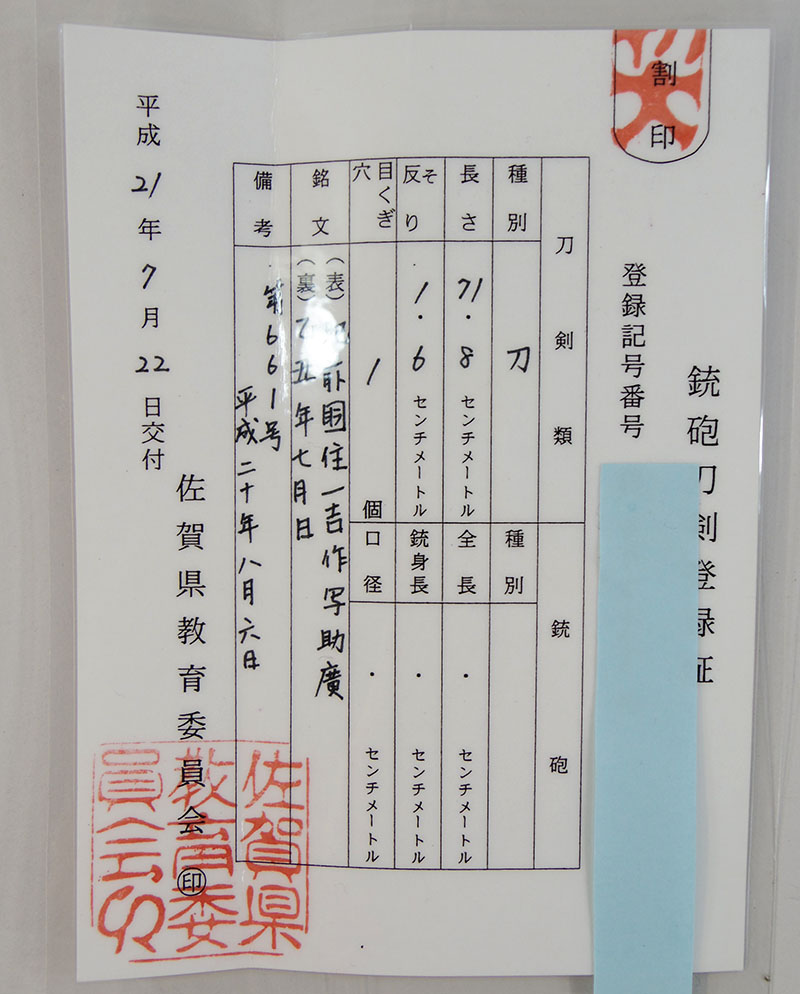 割印
銃砲刀剣登録証
登録記号番号
刀剣類
銃砲
種別
刀
種別
長さ
71.8センチメートル
全長
・センチメートル
反り
そ
1.6センチメートル
銃身長
・センチメートル
目くぎ穴
1個
口径
・センチメートル
銘文
(表)前国住一吉作写助廣
(裏)乙丑年七月日
備考
第661号
平成二十年八月六日
平成21年7月22日交付
佐賀県教育委員会㊞
佐賀県
教育委
員会印